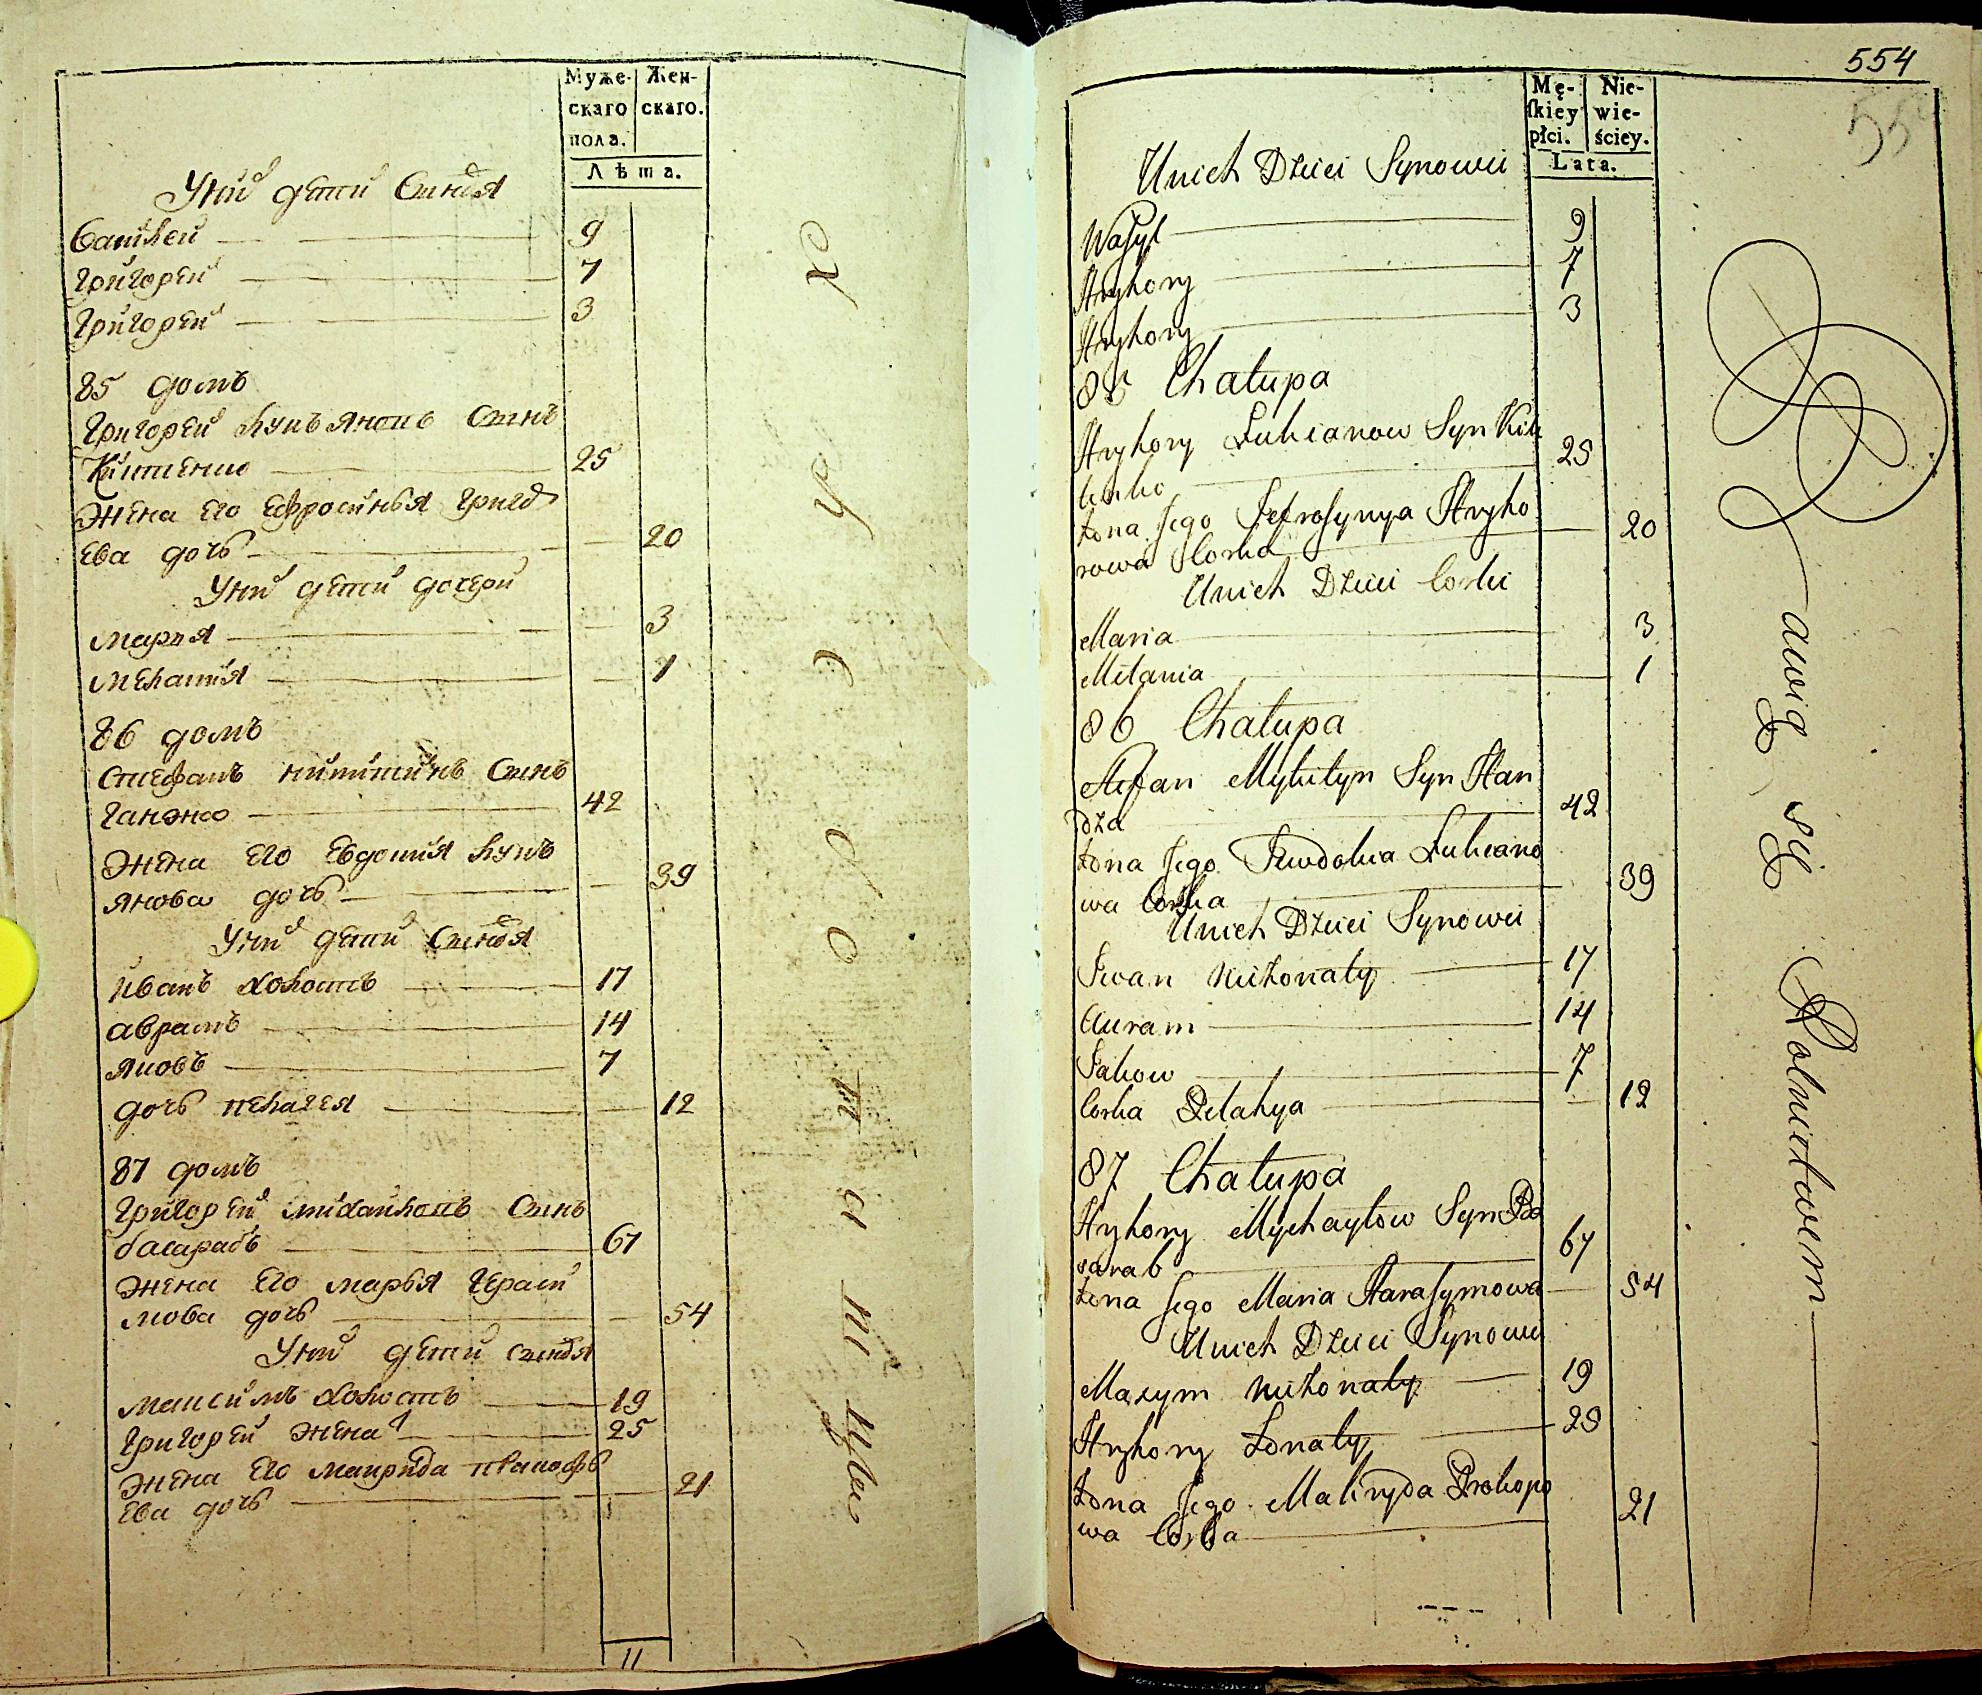 Муже-
скаго
пола.
Жен-
скаго.
Лѣта.
У ни дети Синовя
Василей 9
Григорей 7
Григорей 3
85 домъ
Григорей Лукъяновъ Синъ
Китченко 25
Жена Его Ефросинья Григо
Ева дочь 20
У ни дети дочери
Марья 3
Мелания 1
86 домъ
Стефанъ Никитинъ Синъ
Ганжа 42
Жена Его Евдокия Лукъ
янова дочь 39
У ни дети Синовя
Иванъ холостъ 17
аврамъ 14
яковъ 7
дочь пелагея 12
87 домъ
Григорей михайловъ Синъ
басарабъ 67
Жена Его марья Гераси
мова дочь 54
У ни дети синовя
максимъ холостъ 19
Григорей жена 25
Жена Его макрида прокофь
Ева дочь 21
11
554
Mę-
ſkiey
płci.
Nie-
wie-
ściey.
Lata.
Unich Dzieci Synowie
Wasyl 9
Hryhory 7
Hryhory 3
85 Chałupa
Hryhory Łukianow Syn Kit
czenko 25
Żona Jego Jefrosynya Hryho
rowa Corka 20
Unich Dzieci Corki
Maria 3
Melania 1
86 Chałupa
Stefan Mykityn Syn Han
dza 42
Żona Jego Jewdokia Łukiano
wa Corka 39
Unich Dzieci Synowie
Iwan nieżonaty 17
Auram 14
Jakow 7
Corka Pelahya 12
87 Chałupa
Hryhory Mychayłow Syn Ba
sarab 67
Żona Jego Maria Harasymowa 54
Unich Dzieci Synowie
Maxym nieżonaty 19
Hryhory Żonaty 25
Żona Jego Makryda Prokopo
wa Corka 21
awią się Rolnictwem